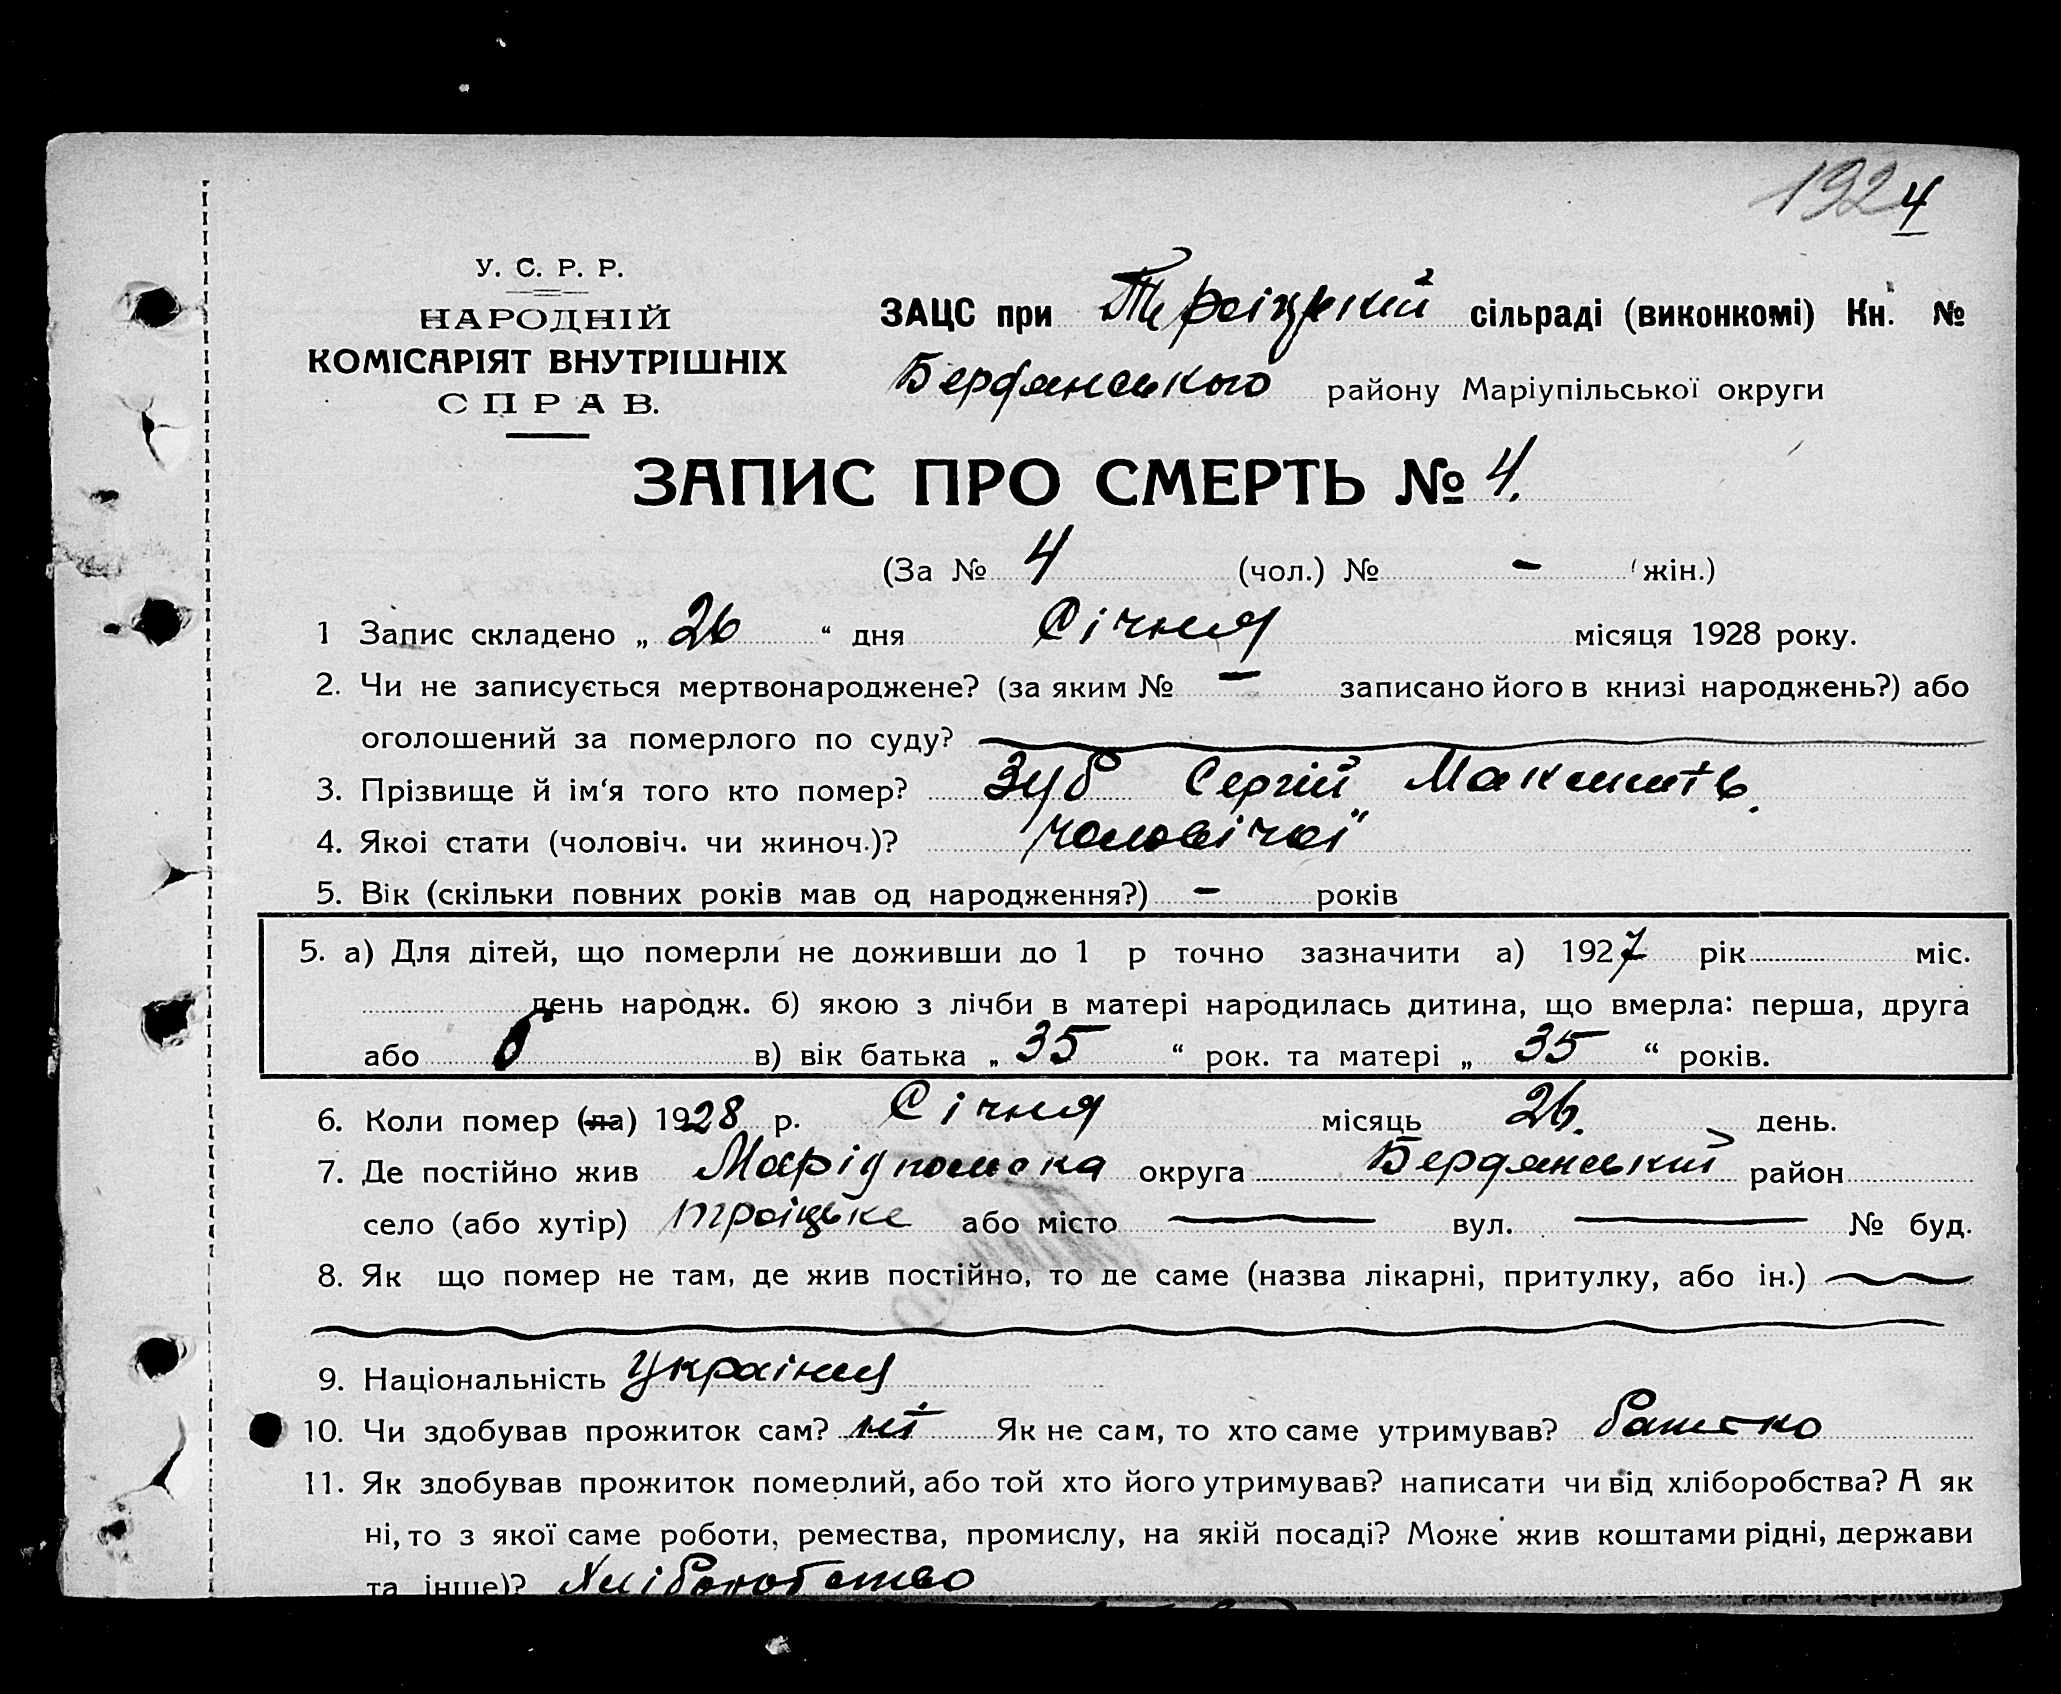 1924
У. С. Р. Р.
НАРОДНІЙ
КОМІСАРІЯТ ВНУТРІШНІХ
СПРАВ.
ЗАЦС при Троіцькій сільраді (виконкомі) Кн. №
Бердянського району Маріупільської округи
ЗАПИС ПРО СМЕРТЬ № 4.
(За № 4 (чол.) № - жін.)
1 Запис складено „ 26 “ дня Січня місяця 1928 року.
2. Чи не записується мертвонароджене? (за яким № — записано його в книзі народжень?) або
оголошений за померлого по суду?
3. Прізвище й ім‘я того кто помер? Зуб Сергій
4. Якоі стати (чоловіч. чи жиноч.)? чоловічої
5. Вік (скільки повних років мав од народження?) - років
5. а) Для дітей, що померли не доживши до 1 р точно зазначити а) 1927 рік міс.
день народж. б) якою з лічби в матері народилась дитина, що вмерла: перша, друга
або 6 в) вік батька „ 35 “ рок. та матері „ 35 “ років.
6. Коли помер (ла) 1928 р. Січня місяць 26. день.
7. Де постійно жив округа Бердянський район
село (або хутір) Троіцьке або місто — вул. — № буд.
8. Як що помер не там, де жив постійно, то де саме (назва лікарні, притулку, або ін.)
9. Національність
10. Чи здобував прожиток сам? ні Як не сам, то хто саме утримував? батько
11. Як здобував прожиток померлий, або той хто його утримував? написати чи від хліборобства? А як
ні, то з якої саме роботи, ремества, промислу, на якій посаді? Може жив коштами рідні, держави
та інше)? Хліборобство